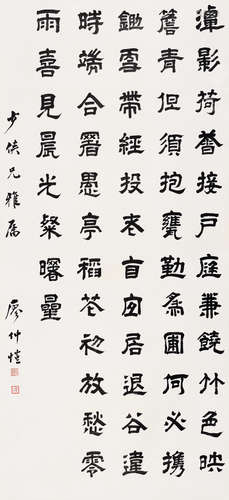 潭影荷香接戶庭兼饒竹色映
簷青但須抱甕勤為圃何必攜
鋤更帶經投老宜居退谷違
時端合署愚亭稻花初放愁零
雨喜見晨光粲曙星
少侯兄雅屬
廖仲愷